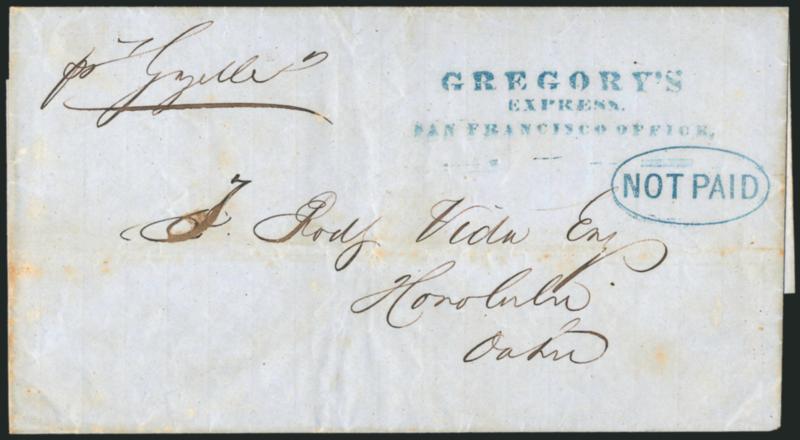 pr Gazelle
GREGORY'S
EXPRESS.
SAN FRANCISCO OFFICE,
NOT PAID
F. Rodf Vida Esq
Honolulu
Oahu